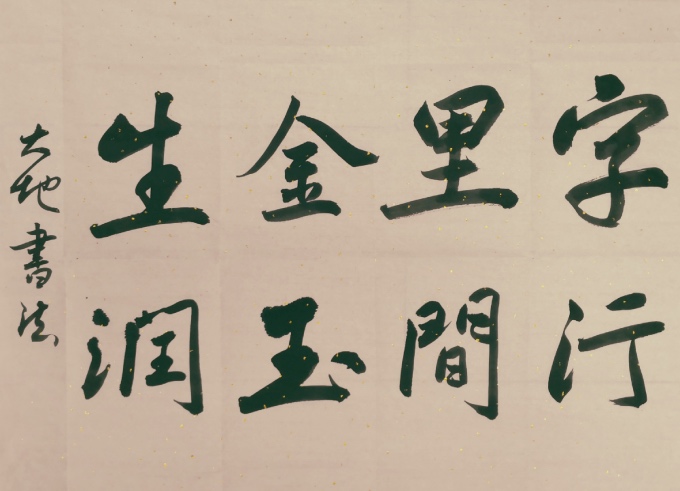 字里金生
行間玉润
大地書法